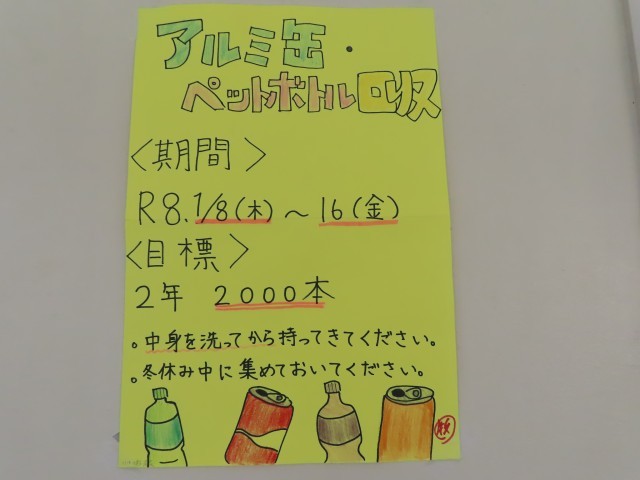 アルミ缶・
ペットボトル回収
〈期間〉
R8.1/8(木)～16(金)
〈目標〉
2年 2000本
。中身を洗ってから持ってきてください。
。冬休み中に集めておいてください。